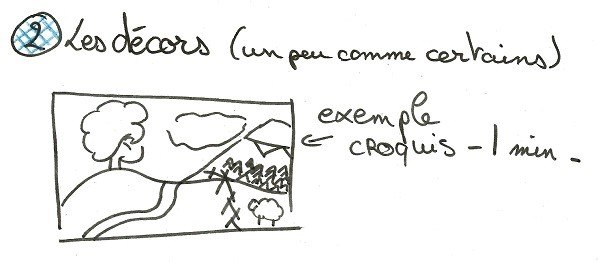 2 Les décors (un peu comme certains)
exemple
← CROQUIS - 1 min -